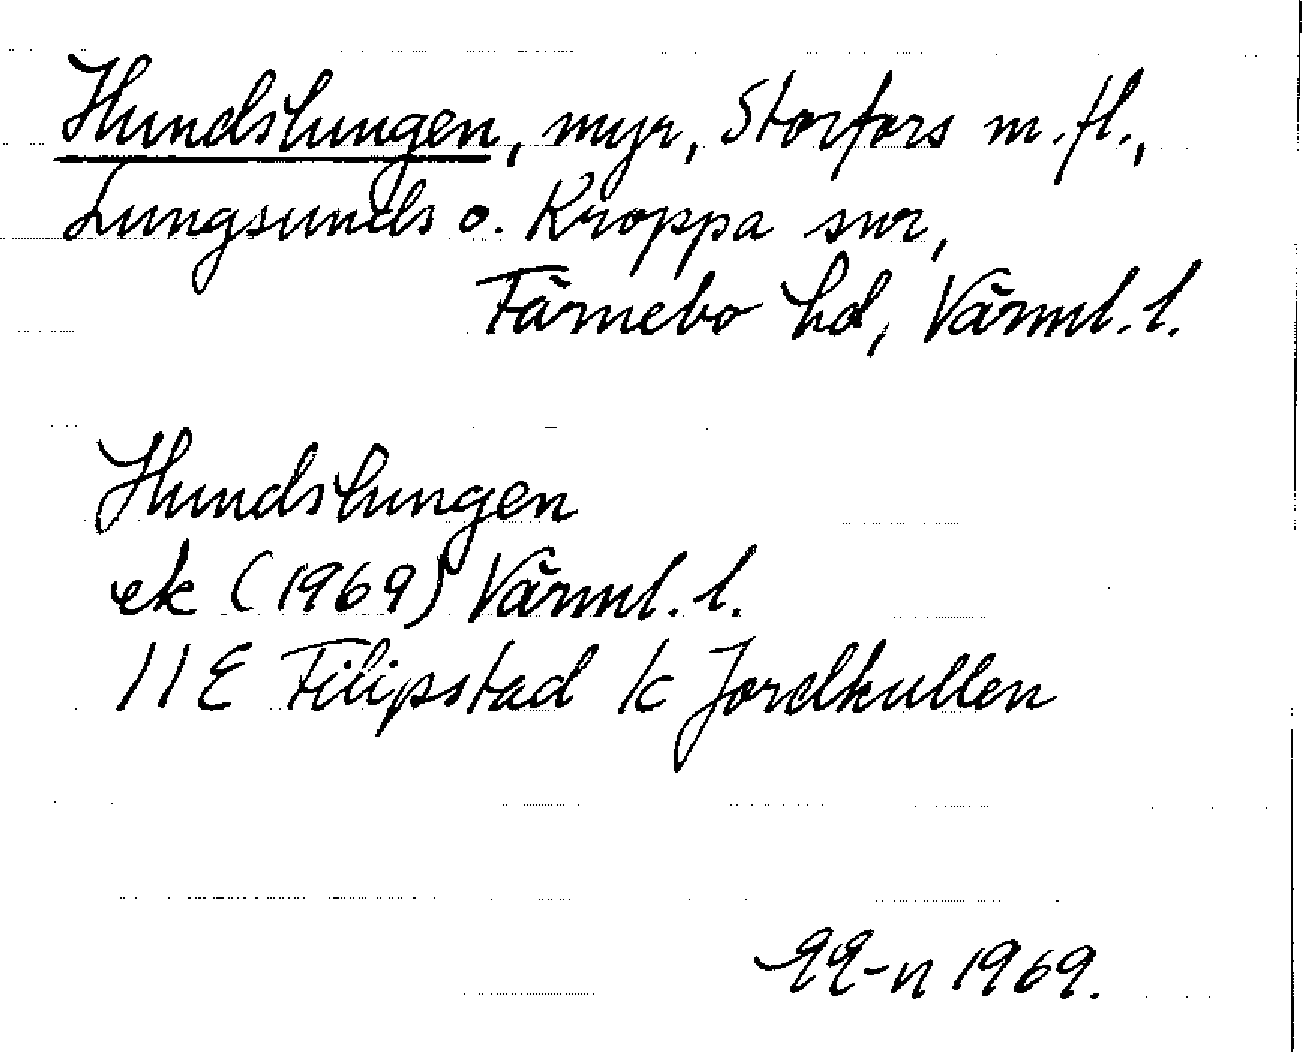 Hundslungen, myr, Storfors m.fl.,
Lungsunds o. Kroppa snr,
Färnebo hd, Värml. l.
Hundslungen
ek (1969) Värml. l.
11E Filipstad 1c Jordkullen
1969.